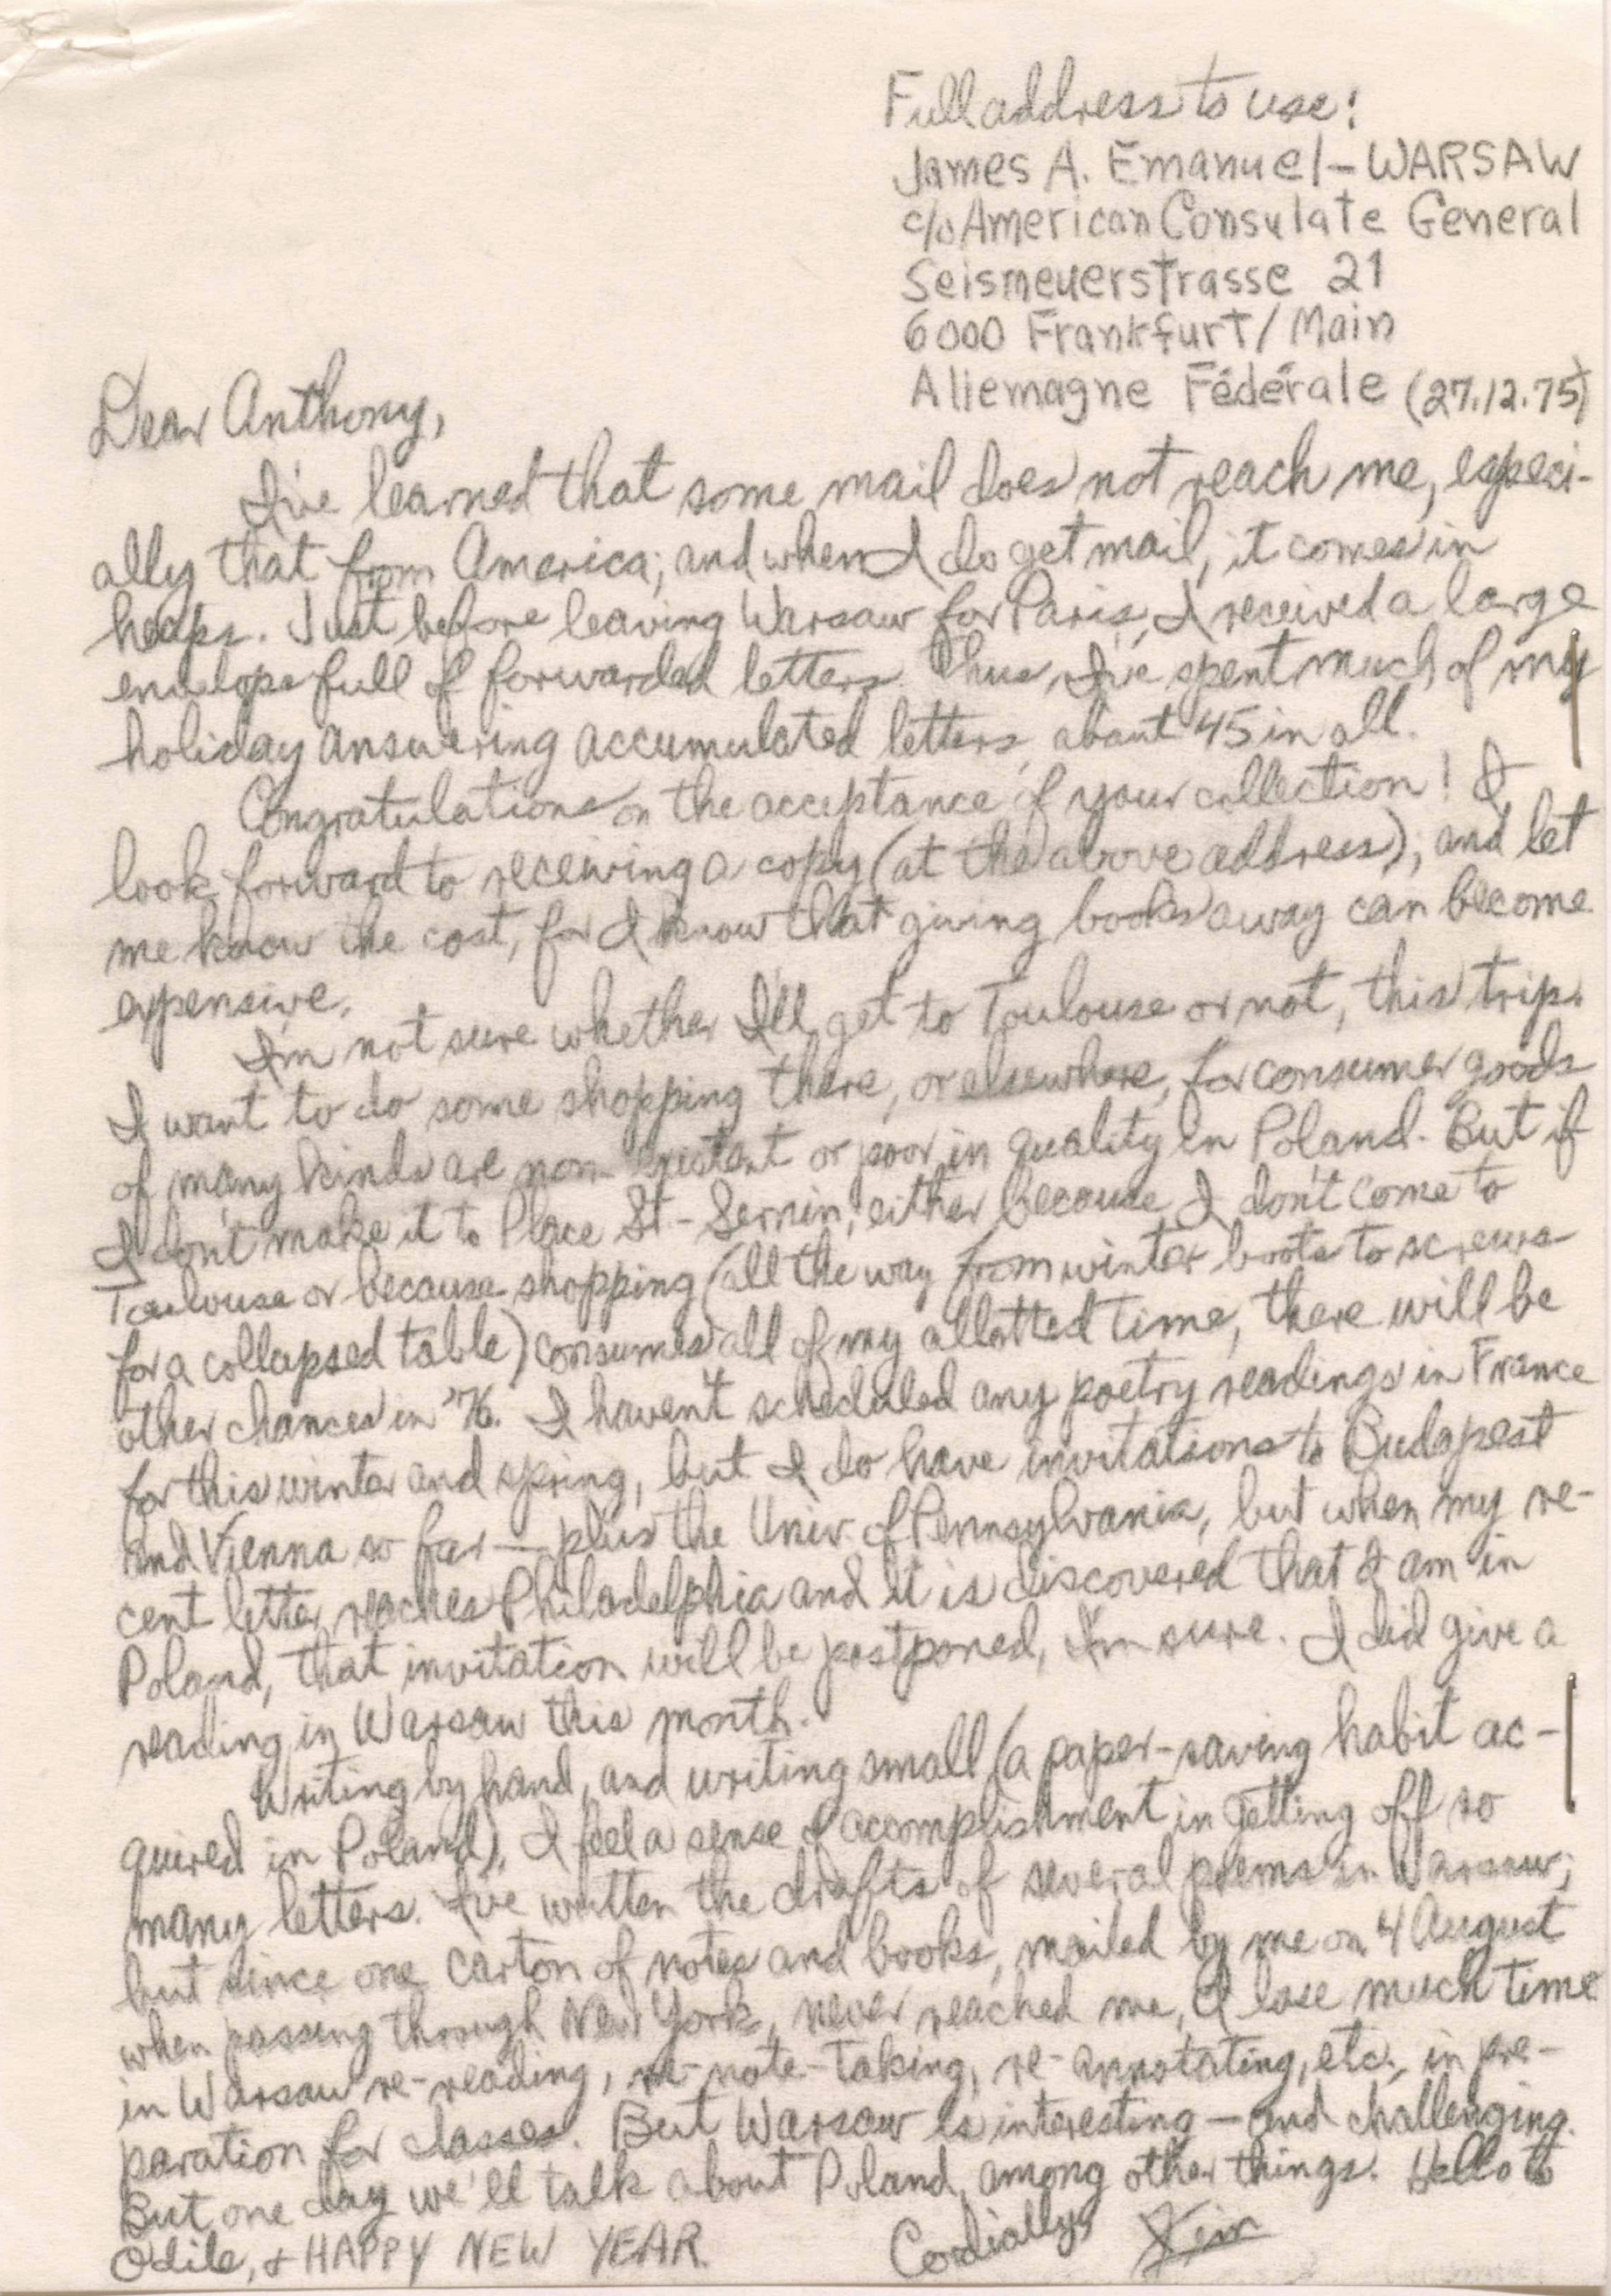 Full address to use:
James A. Emanuel – WARSAW
c/o American Consulate General
Seismeyerstrasse 21
6000 Frankfurt/Main
Allemagne Fédérale (27.12.75)
Dear Anthony,
I've learned that some mail does not reach me, especi-
ally that from America; and when I do get mail, it comes in
heaps. Just before leaving Warsaw for Paris, I received a large
envelope full of forwarded letters. Thus, I've spent much of my
holiday answering accumulated letters, about 45 in all.
Congratulations on the acceptance of your collection! I
look forward to receiving a copy (at the above address); and let
me know the cost, for I know that giving books away can become
expensive.
I'm not sure whether I'll get to Toulouse or not, this trip.
I want to do some shopping there, or elsewhere, for consumer goods
of many kinds are non-existent or poor in quality in Poland. But if
I don't make it to Place St.-Sernin, either because I don't come to
Toulouse or because shopping (all the way from winter boots to screws
for a collapsed table) consumes all of my allotted time, there will be
other chances in '76. I haven't scheduled any poetry readings in France
for this winter and spring, but I do have invitations to Budapest
and Vienna so far — plus the Univ. of Pennsylvania, but when my re-
cent letter reaches Philadelphia and it is discovered that I am in
Poland, that invitation will be postponed, I'm sure. I did give a
reading in Warsaw this month.
Writing by hand, and writing small (a paper-saving habit ac-
quired in Poland), I feel a sense of accomplishment in getting off so
many letters. I've written the drafts of several poems in Warsaw;
but since one carton of notes and books, mailed by me on 4 August
when passing through New York, never reached me, I lose much time
in Warsaw re-reading, re-note-taking, re-annotating, etc., in pre-
paration for classes. But Warsaw is interesting — and challenging.
But one day we'll talk about Poland, among other things. Hello to
Odile, & HAPPY NEW YEAR.
Cordially, Jim